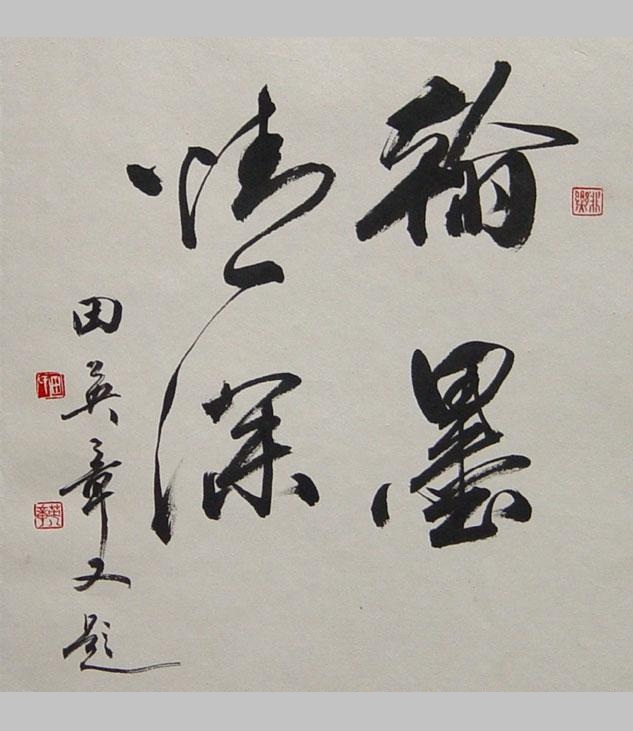 翰墨
情深
田英章又题